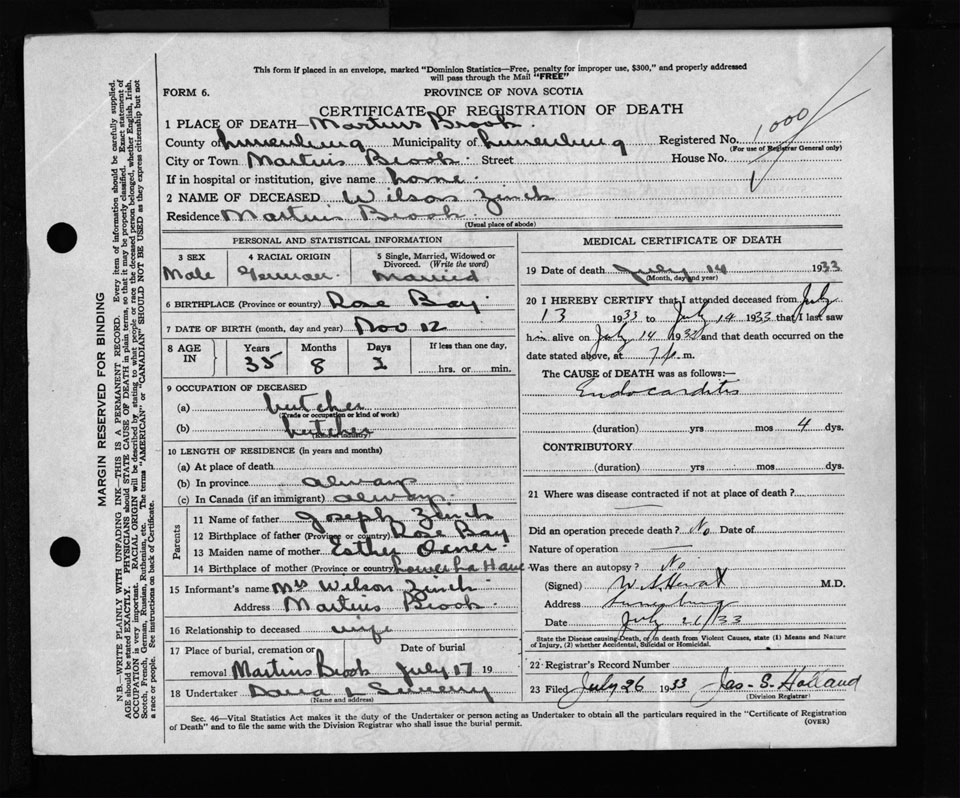 This form if placed in an envelope, marked "Dominion Statistics—Free, penalty for improper use, $300," and properly addressed
will pass through the Mail "FREE"
FORM 6. PROVINCE OF NOVA SCOTIA
CERTIFICATE OF REGISTRATION OF DEATH
1 PLACE OF DEATH— Martins Brook.
County of Lunenburg Municipality of Lunenburg Registered No. 1,000
(For use of Registrar General only)
City or Town Martins Brook. Street House No.
If in hospital or institution, give name home.
2 NAME OF DECEASED Wilson Zinck
Residence Martins Brook.
(Usual place of abode)
PERSONAL AND STATISTICAL INFORMATION
3 SEX 4 RACIAL ORIGIN 5 Single, Married, Widowed or
Divorced. (Write the word)
Male German. Married
6 BIRTHPLACE (Province or country) Rose Bay.
7 DATE OF BIRTH (month, day and year) Nov 12
8 AGE IN Years Months Days If less than one day,
35 8 2 hrs. or min.
9 OCCUPATION OF DECEASED
(a) butcher
(Trade or occupation or kind of work)
(b) butcher
10 LENGTH OF RESIDENCE (in years and months)
(a) At place of death
(b) In province always
(c) In Canada (if an immigrant) always.
Parents
11 Name of father Joseph Zinck
12 Birthplace of father (Province or country) Rose Bay
13 Maiden name of mother Esther
14 Birthplace of mother (Province or country)
15 Informant's name Mrs Wilson Zinck.
Address Martins Brook.
16 Relationship to deceased wife
17 Place of burial, cremation or Date of burial
removal Martins Brook July 17 19
18 Undertaker
(Name and address)
MEDICAL CERTIFICATE OF DEATH
19 Date of death July 14 1933
(Month, day and year)
20 I HEREBY CERTIFY that I attended deceased from July
13 1933 to July 14 1933 that I last saw
him alive on July 14 1933 and that death occurred on the
date stated above, at 7 p. m.
The CAUSE of DEATH was as follows:—
Endocarditis
(duration) yrs mos 4 dys.
CONTRIBUTORY
(duration) yrs mos dys.
21 Where was disease contracted if not at place of death?
Did an operation precede death? No Date of
Nature of operation —
Was there an autopsy? No
(Signed) M.D.
Address Lunenburg
Date July 26/33
State the Disease causing Death, or in death from Violent Causes, state (1) Means and Nature
of Injury, (2) whether Accidental, Suicidal or Homicidal.
22 Registrar's Record Number
23 Filed July 26 1933 Jas. S. Holland
(Division Registrar)
Sec. 46—Vital Statistics Act makes it the duty of the Undertaker or person acting as Undertaker to obtain all the particulars required in the "Certificate of Registration
of Death" and to file the same with the Division Registrar who shall issue the burial permit. (OVER)
MARGIN RESERVED FOR BINDING
N.B.—WRITE PLAINLY WITH UNFADING INK—THIS IS A PERMANENT RECORD. Every item of information should be carefully supplied.
AGE should be stated EXACTLY. PHYSICIANS should STATE CAUSE OF DEATH in plain terms, so that it may be properly classified. Exact statement of
OCCUPATION is very important. RACIAL ORIGIN will be described by stating to what people or race the deceased person belonged, whether English, Irish,
Scotch, French, German, Russian, Ruthenian, etc. The terms "AMERICAN" or "CANADIAN" SHOULD NOT BE USED as they express citizenship but not
a race or people. See instructions on back of Certificate.